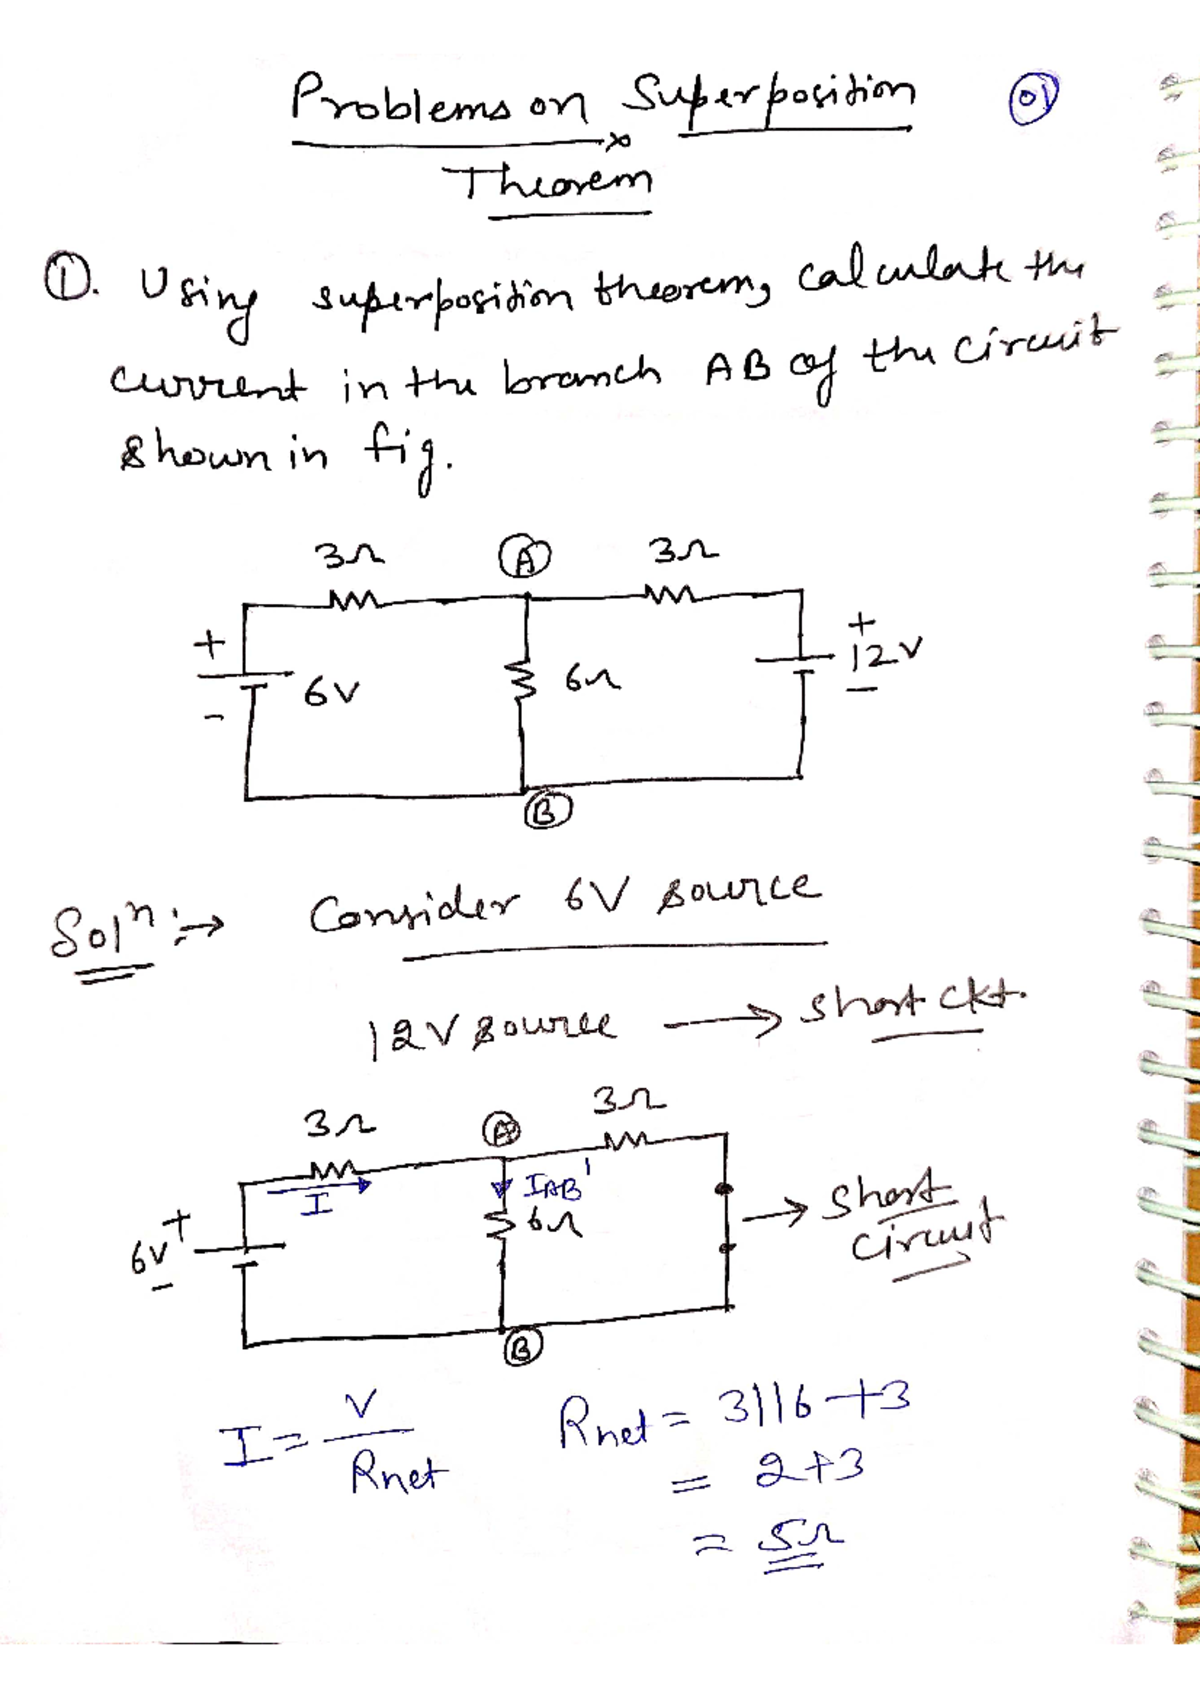 Problems on Superposition
Theorem
01
①. Using superposition theorem, calculate the
current in the branch AB of the circuit
shown in fig.
3Ω A 3Ω
+ 6V - 6Ω + 12V -
B
Solⁿ :→ Consider 6V source
12V source → short ckt.
3Ω A 3Ω
I IAB' → Short
6V + - 6Ω circuit
B
I = V / Rnet Rnet = 3||6+3
= 2+3
= 5Ω